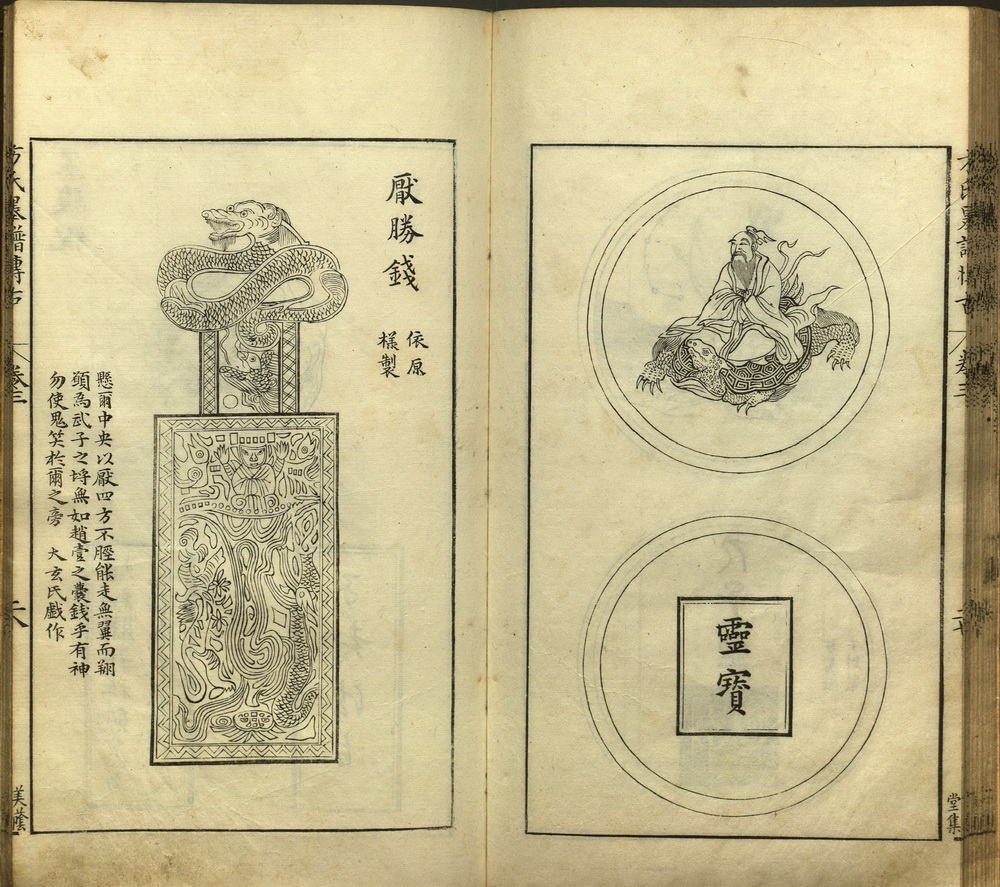 方氏墨譜博古
卷三
堂集
靈寶
厭勝錢
依原
樣製
懸爾中央以厭四方不脛能走無翼而翔
願為武子之埒無如趙壹之囊錢乎有神
勿使鬼笑於爾之旁 大玄氏戲作
方氏墨譜博古
卷三
美蔭